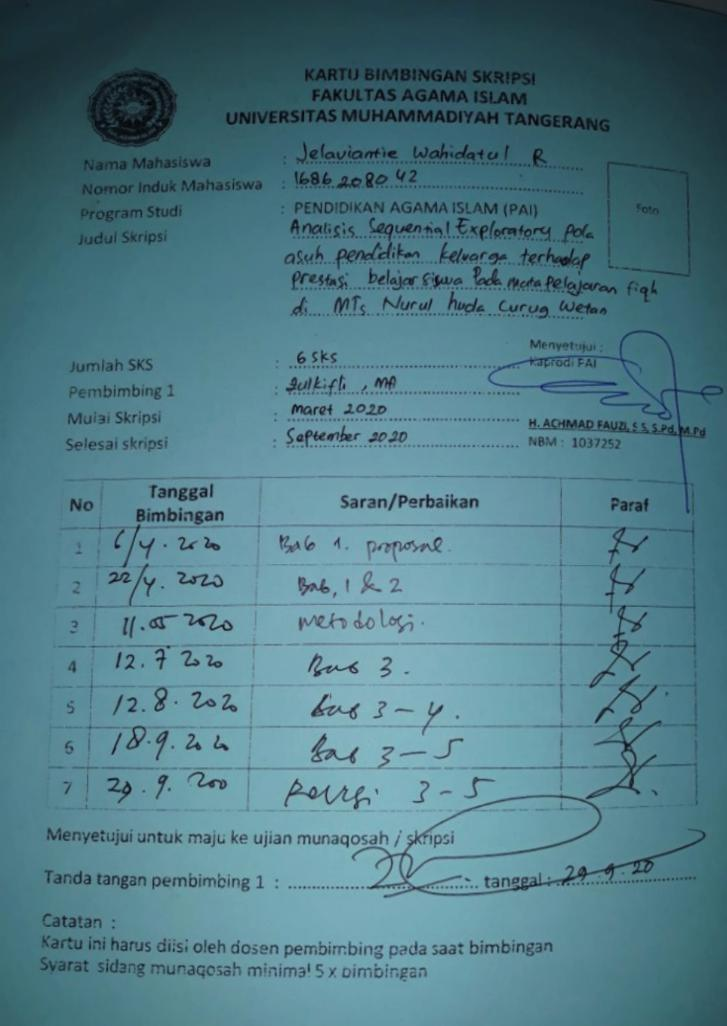 KARTU BIMBINGAN SKRIPSI
FAKULTAS AGAMA ISLAM
UNIVERSITAS MUHAMMADIYAH TANGERANG
Nama Mahasiswa : Jelaviantie Wahidatul R
Nomor Induk Mahasiswa : 1686208042
Program Studi : PENDIDIKAN AGAMA ISLAM (PAI)
Judul Skripsi : Analisis Sequential Exploratory pola
asuh pendidikan keluarga terhadap
prestasi belajar siswa Pada mata Pelajaran fiqh
di MTs Nurul huda Curug Wetan
Foto
Jumlah SKS : 6 sks
Pembimbing 1 : Zulkifli, MA
Mulai Skripsi : Maret 2020
Selesai skripsi : September 2020
Menyetujui :
Kaprodi PAI
H. ACHMAD FAUZI, S.S, S.Pd, M.Pd
NBM : 1037252
No Tanggal Bimbingan Saran/Perbaikan Paraf
1 6/4.2020 Bab 1. proposal.
2 22/4.2020 Bab, 1 & 2
3 11.05 2020 metodologi.
4 12.7 2020 Bab 3.
5 12.8.2020 Bab 3-4.
6 18.9.2020 Bab 3-5
7 29.9.200 Revisi 3-5
Menyetujui untuk maju ke ujian munaqosah / skripsi
Tanda tangan pembimbing 1 : tanggal : 29.9.20
Catatan :
Kartu ini harus diisi oleh dosen pembimbing pada saat bimbingan
Syarat sidang munaqosah minimal 5 x bimbingan